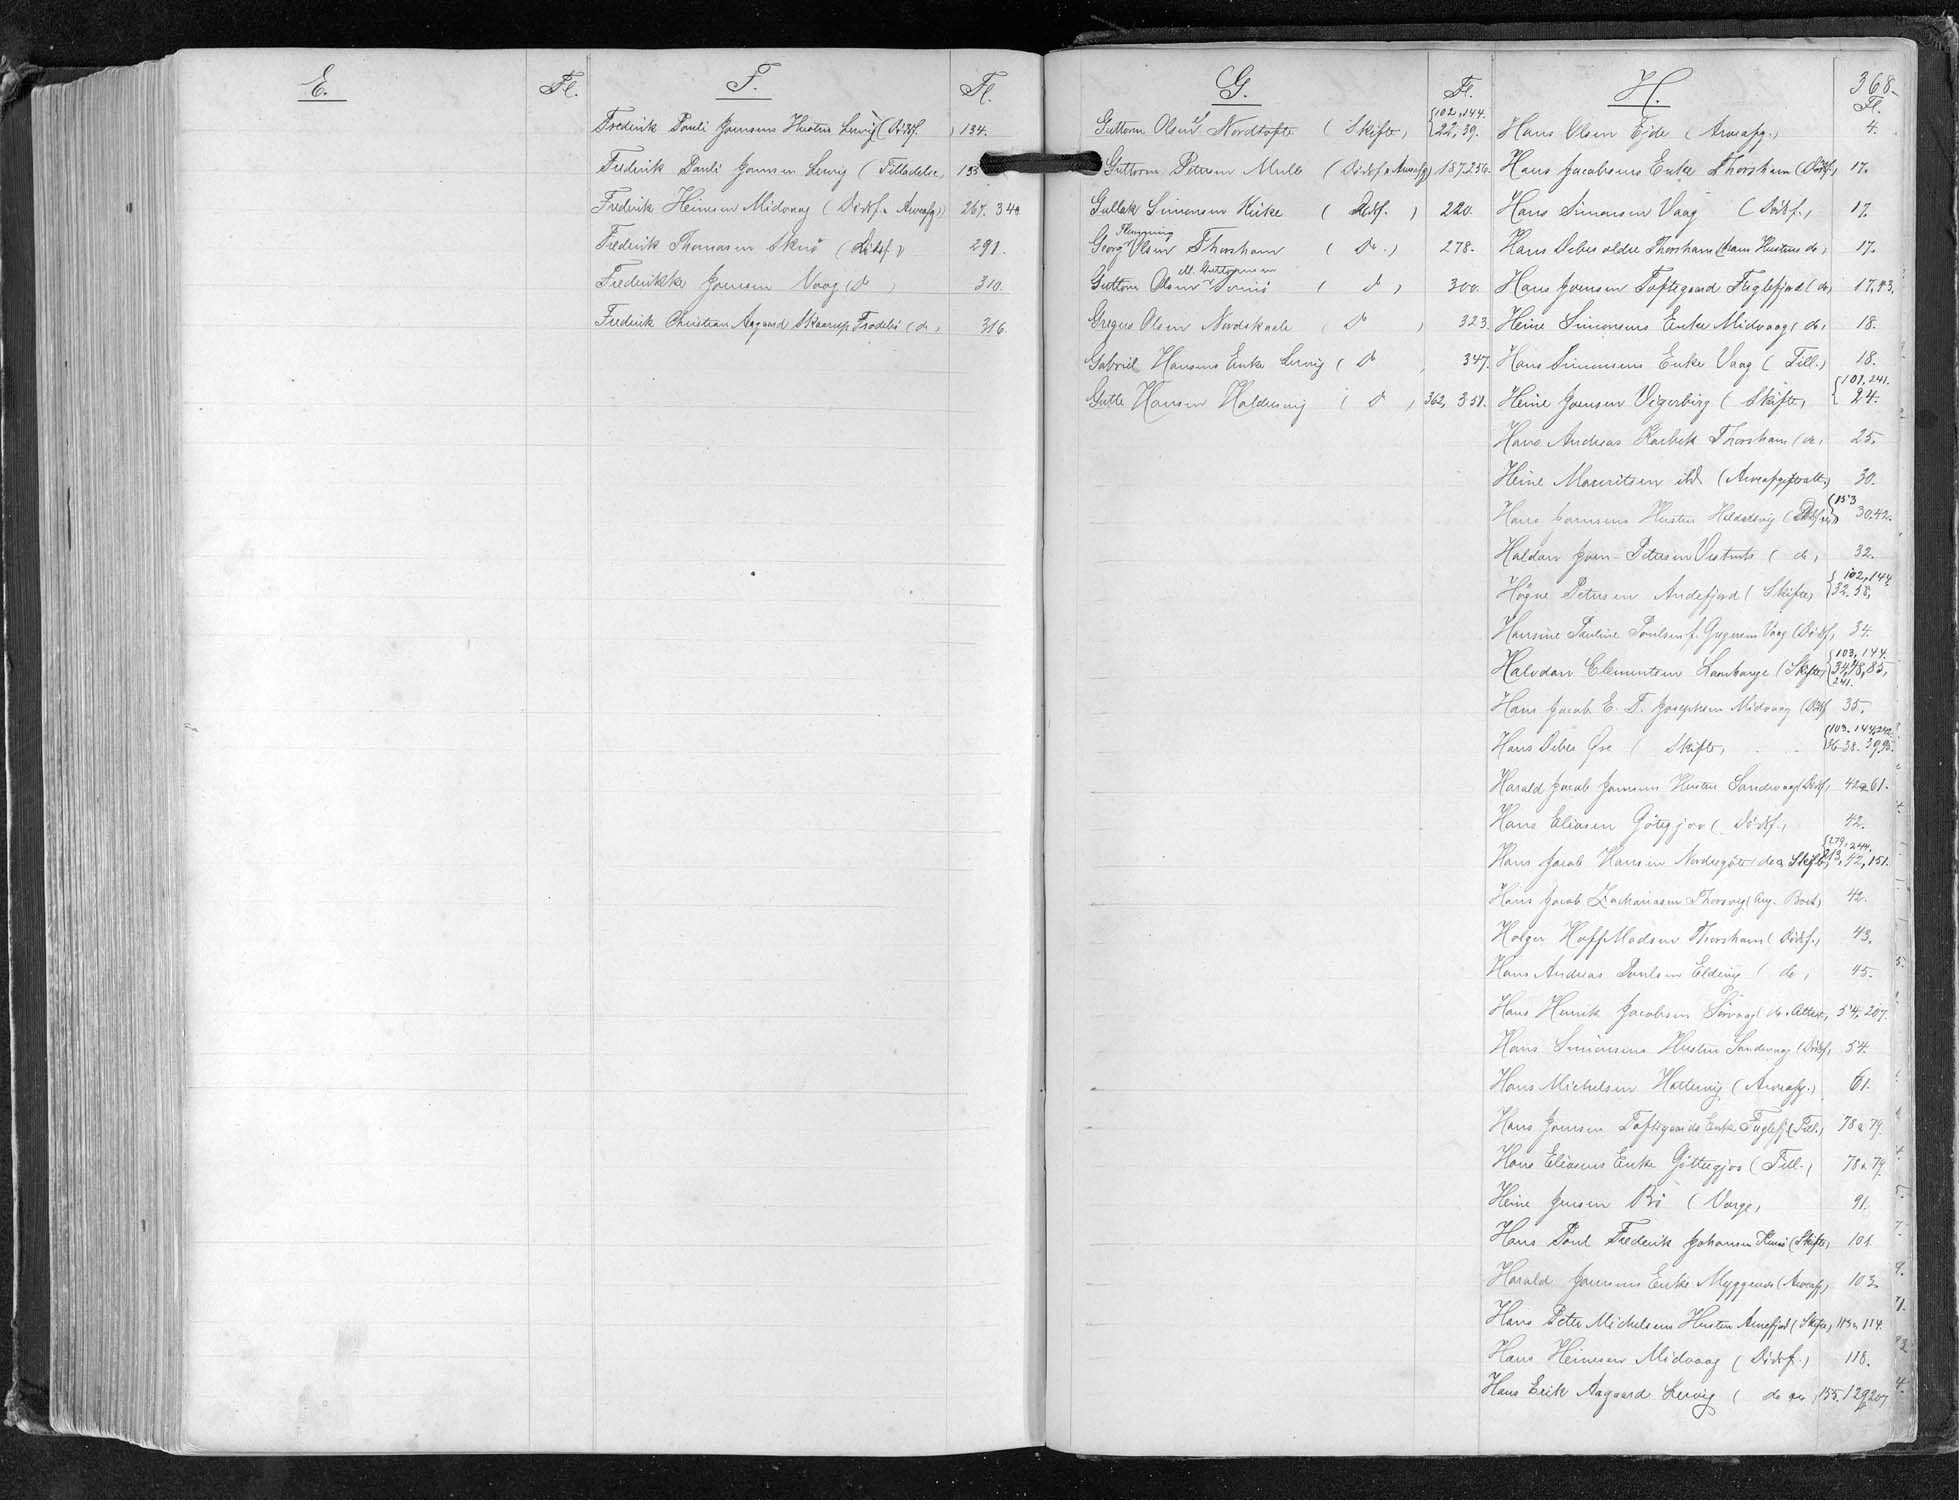 E.
Fl.
F.
Fl.
Frederik Pauli Joensens Hustru Lervig (Dødsf. ) 134.
Frederik Pauli Joensen Lervig ( Tilladelse)
Frederik Heinesen Midvaag ( Dødsf. & Arveafg.) 267. 340
Frederik Thomasen Skuø ( Dødsf.) 291.
Frederikke Joensen Vaag (do ) 310.
Frederik Christian Aagaard Skaarup Frodebø (do) 316.
G.
Fl.
Guttorm Olsen Nordtofte ( Skifte) {102,144. 22,39.
Guttorm Petersen Mule ( Dødsf. & Arveafg) 187.256.
Gullak Simonsen Kirke ( Dødsf. ) 220.
Georg Flemming Olsen Thorshavn ( Do. ) 278.
Guttorm Olsen ( do ) 300.
Gregers Olsen Nordskaale ( do ) 323.
Gabriel Hansens Enke Lervig ( do ) 347.
Gutte Hansen Haldersvig ( do ) 362, 351.
368.
H.
Fl.
Hans Olsen Ejde ( Arveafg.) 4.
Hans Jacobsens Enke Thorshavn (Dødsf.) 17.
Hans Simonsen Vaag ( Dødsf.) 17.
Hans Debes ældre Thorshavn (hans Hustru do) 17.
Hans Joensen Toftegaard Fuglefjord ( do) 17,43.
Heine Simonsens Enke Midvaag ( do) 18.
Hans Simonsens Enke Vaag ( Till.) 18.
Heine Joensen Vigerbirg ( Skifte) {101,241. 24.
Hans Andreas Thorshavn (do) 25.
Heine Mouritsen ibd. (Arveafgift 30.
Hans Joensens Hustru Haldersvig ( {153 30.42.
Haldan Joen Petersen ( do) 32.
Høgne Petersen Andefjord ( Skifte) {102,144. 32.58,
Hansine Pauline Poulsen f. Vaag (Dødsf) 34.
Halvdan Clementsen Lambareje (Skifte) {103,144. 34,48,85, 241.
Hans Jacob E. T. Josephsen Midvaag (Dødsf 35.
Hans Debes Øre ( Skifte)
Harald Jacob Joensens Hustru Sandevaag (Dødsf) 42&61.
Hans Eliasen Gøtegjov ( Dødsf.) 42.
Hans Jacob Hansen Nordregøte (do & Skifte) 42,151.
Hans Jacob Zachariasen Thorsvig ( 42.
Holger Hoff Madsen Thorshavn ( Dødsf.) 43.
Hans Andreas Poulsen Eldevig ( do) 45.
Hans Henrik Jacobsen Sørvaag ( do & Attest) 54, 207.
Hans Simonsens Hustru Sandevaag (Dødsf) 54.
Hans Michelsen Hattervig ( Arveafg.) 61.
Hans Joensen Toftegaards Enke Fuglefj (Till.) 78 & 79.
Hans Eliasens Enke Gøttegjov ( Till.) 78 & 79.
Heine Jensen Bø ( Værge) 91.
Hans Poul Frederik Johansen Kunø (Skifte) 101
Harald Joensens Enke Myggenæs (Arveafg) 103.
Hans Peter Michelsens Hustru Arnefjord ( Skifte) 113 & 114.
Hans Heinesen Midvaag ( Dødsf.) 118.
Hans Erik Aagaard Lervig ( do 155.129,207